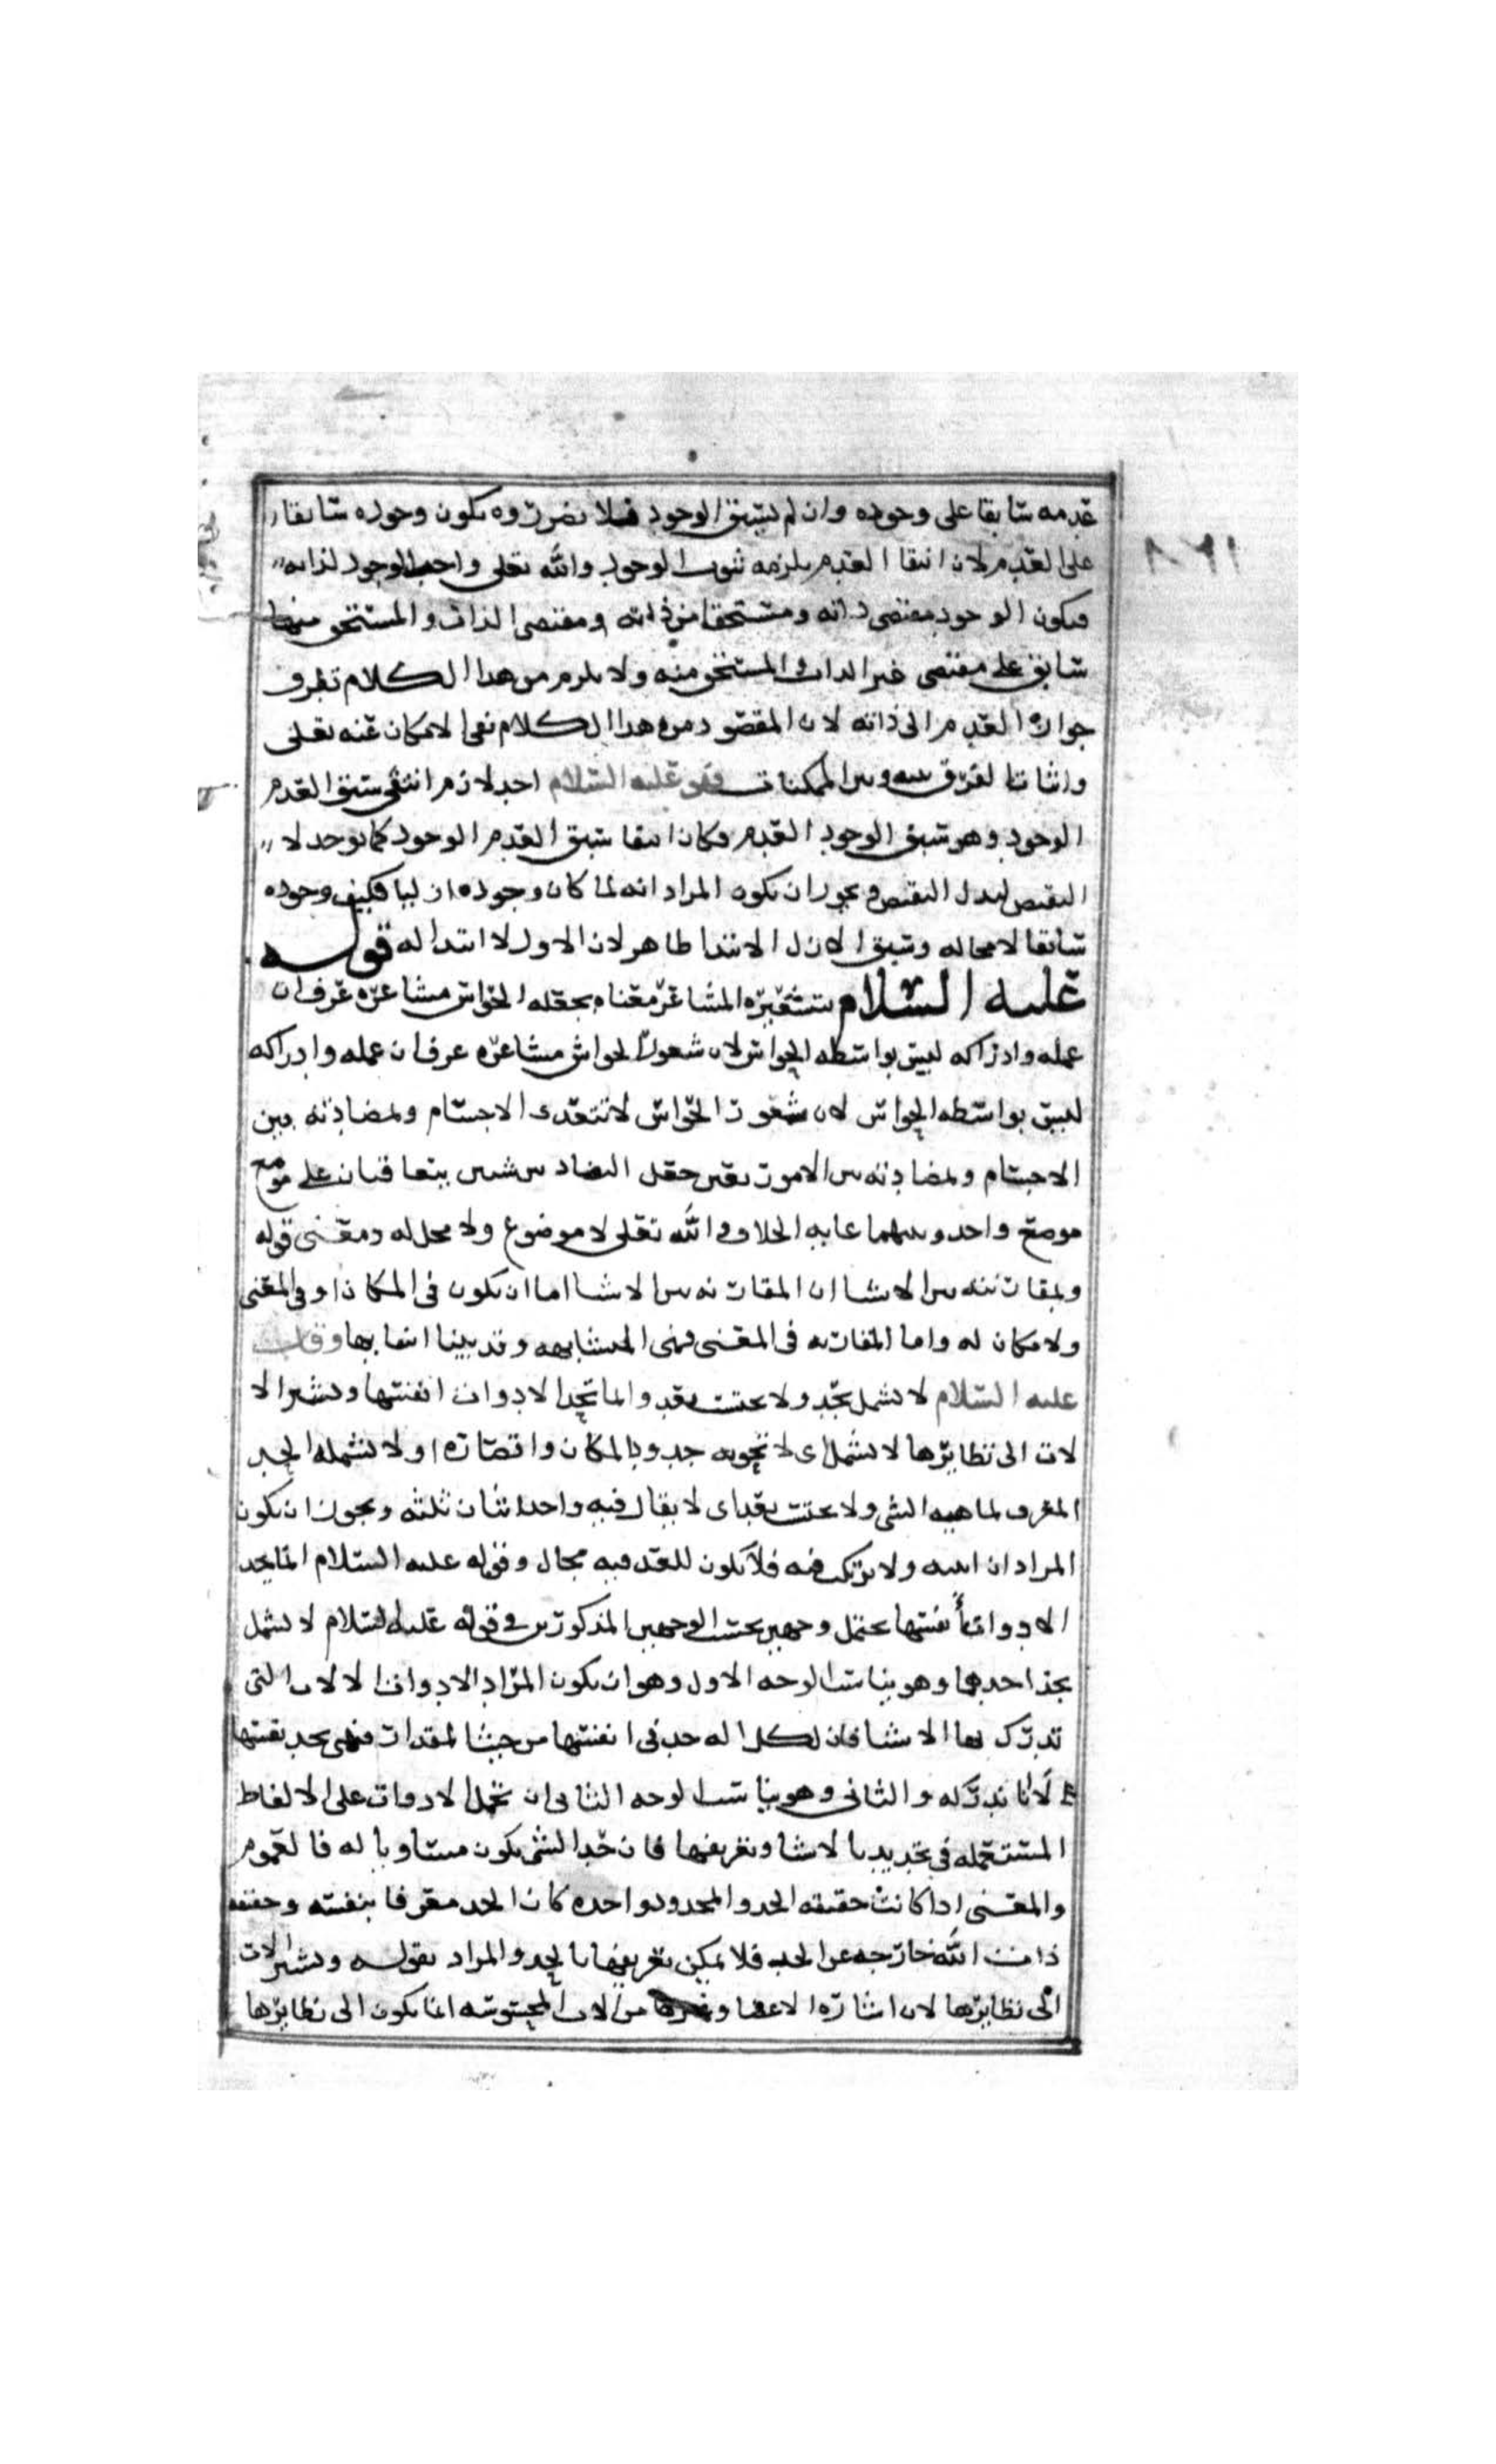 عدمه سابقا على وجوده وان لم يسبق الوجود فبالضرورة يكون وجوده سابقا
على العدم لان انتفا العدم يلزمه ثبوت الوجود والله تعلى واجب الوجود لذاته
فيكون الوجود مقتضى ذاته ومستحقا من ذاته ومقتضى الذات والمستحق منها
سابق على مقتضى غير الذات والمستحق منه ولا يلزم من هدا الكلام تطرف
جواز العدم الى ذاته لان المقصود من هدا الكلام نفى الامكان عنه تعلى
واثباتا لفرق بينه وبين الممكنات فقو عليه السلام احد لازم انتفى سبق العدم
الوجود وهو سبق الوجود العدم وكان انتفا سبق العدم الوجود كما يوجد لا
النقيض لبدل النقيض ويجوز ان يكون المراد انه لما كان وجوده ازليا فيكون وجوده
سابقا لا محاله وسبق الازل الابتدا ظاهر لان الاول لا ابتدا له قوله
عليه السلام بتشعيره المشاعر معناه بجعله الحواس مشاعره عرف ان
علمه وادراكه ليس بواسطه الحواس لان شعور الحواس مشاعره عرف ان علمه وادراكه
ليس بواسطه الحواس لان شعور الحواس لا تتعدى الاجسام وبمضادته بين
الاجسام وبمضادته بين الامور يعنى جعل التضاد بين شيين يتعاقبان على موضع
موضع واحد وبينهما غايه الخلاف والله تعلى لا موضوع ولا محل له ومعنى قوله
وبمقارنته بين الاشيا ان المقارنه بين الاشيا اما ان يكون فى المكان او فى المعنى
ولا مكان له واما المقارنه فى المعنى فهى المشابهه وقد بينا انتفا بها وقال
عليه السلام لا يشمل بحد ولا يحسب بعد وانما تحد الادوات انفسها وتشير الا
لات الى نظايرها لا يشمل اى لا تحويه حدود المكان واقصاره او لا يشمله الحد
المعرف لماهيه الشى ولا يحسب بعد اى لا يقال فيه واحد اثنان ثلثه ويجوز ان يكون
المراد ان اسه ولا تركب فيه فلا يكون للعد فيه مجال وقوله عليه السلام انما يحد
الادوات انفسها يحتمل وجهين بحسب الوجهين المذكورين فى قوله عليه السلام لا يشمل
بحد احدهما وهو يناسب الوجه الاول وهو ان يكون المراد بالادوات الالات التى
تدرك بها الاشيا فان لكل اله حد فى انفسها من حيث المقدار فهى يحد نفسها
لا نا ندركه والثانى وهو يناسب الوجه الثانى ان تحمل الادوات على الالفاظ
المستعمله فى تحديد الاشيا وتعريفها فان حد الشى يكون مساويا له فالعموم
والمعنى اذا كانت حقيقه الحد والمحدود واحده كان الحد معرفا بنفسه وحقيقه
ذات الله خارجه عن الحد فلا يمكن تعريفها بالحد والمراد بقوله وتشير الالات
الى نظايرها لان اشاره الاعضا وغيرها من الالات المحسوسه انما يكون الى نظايرها